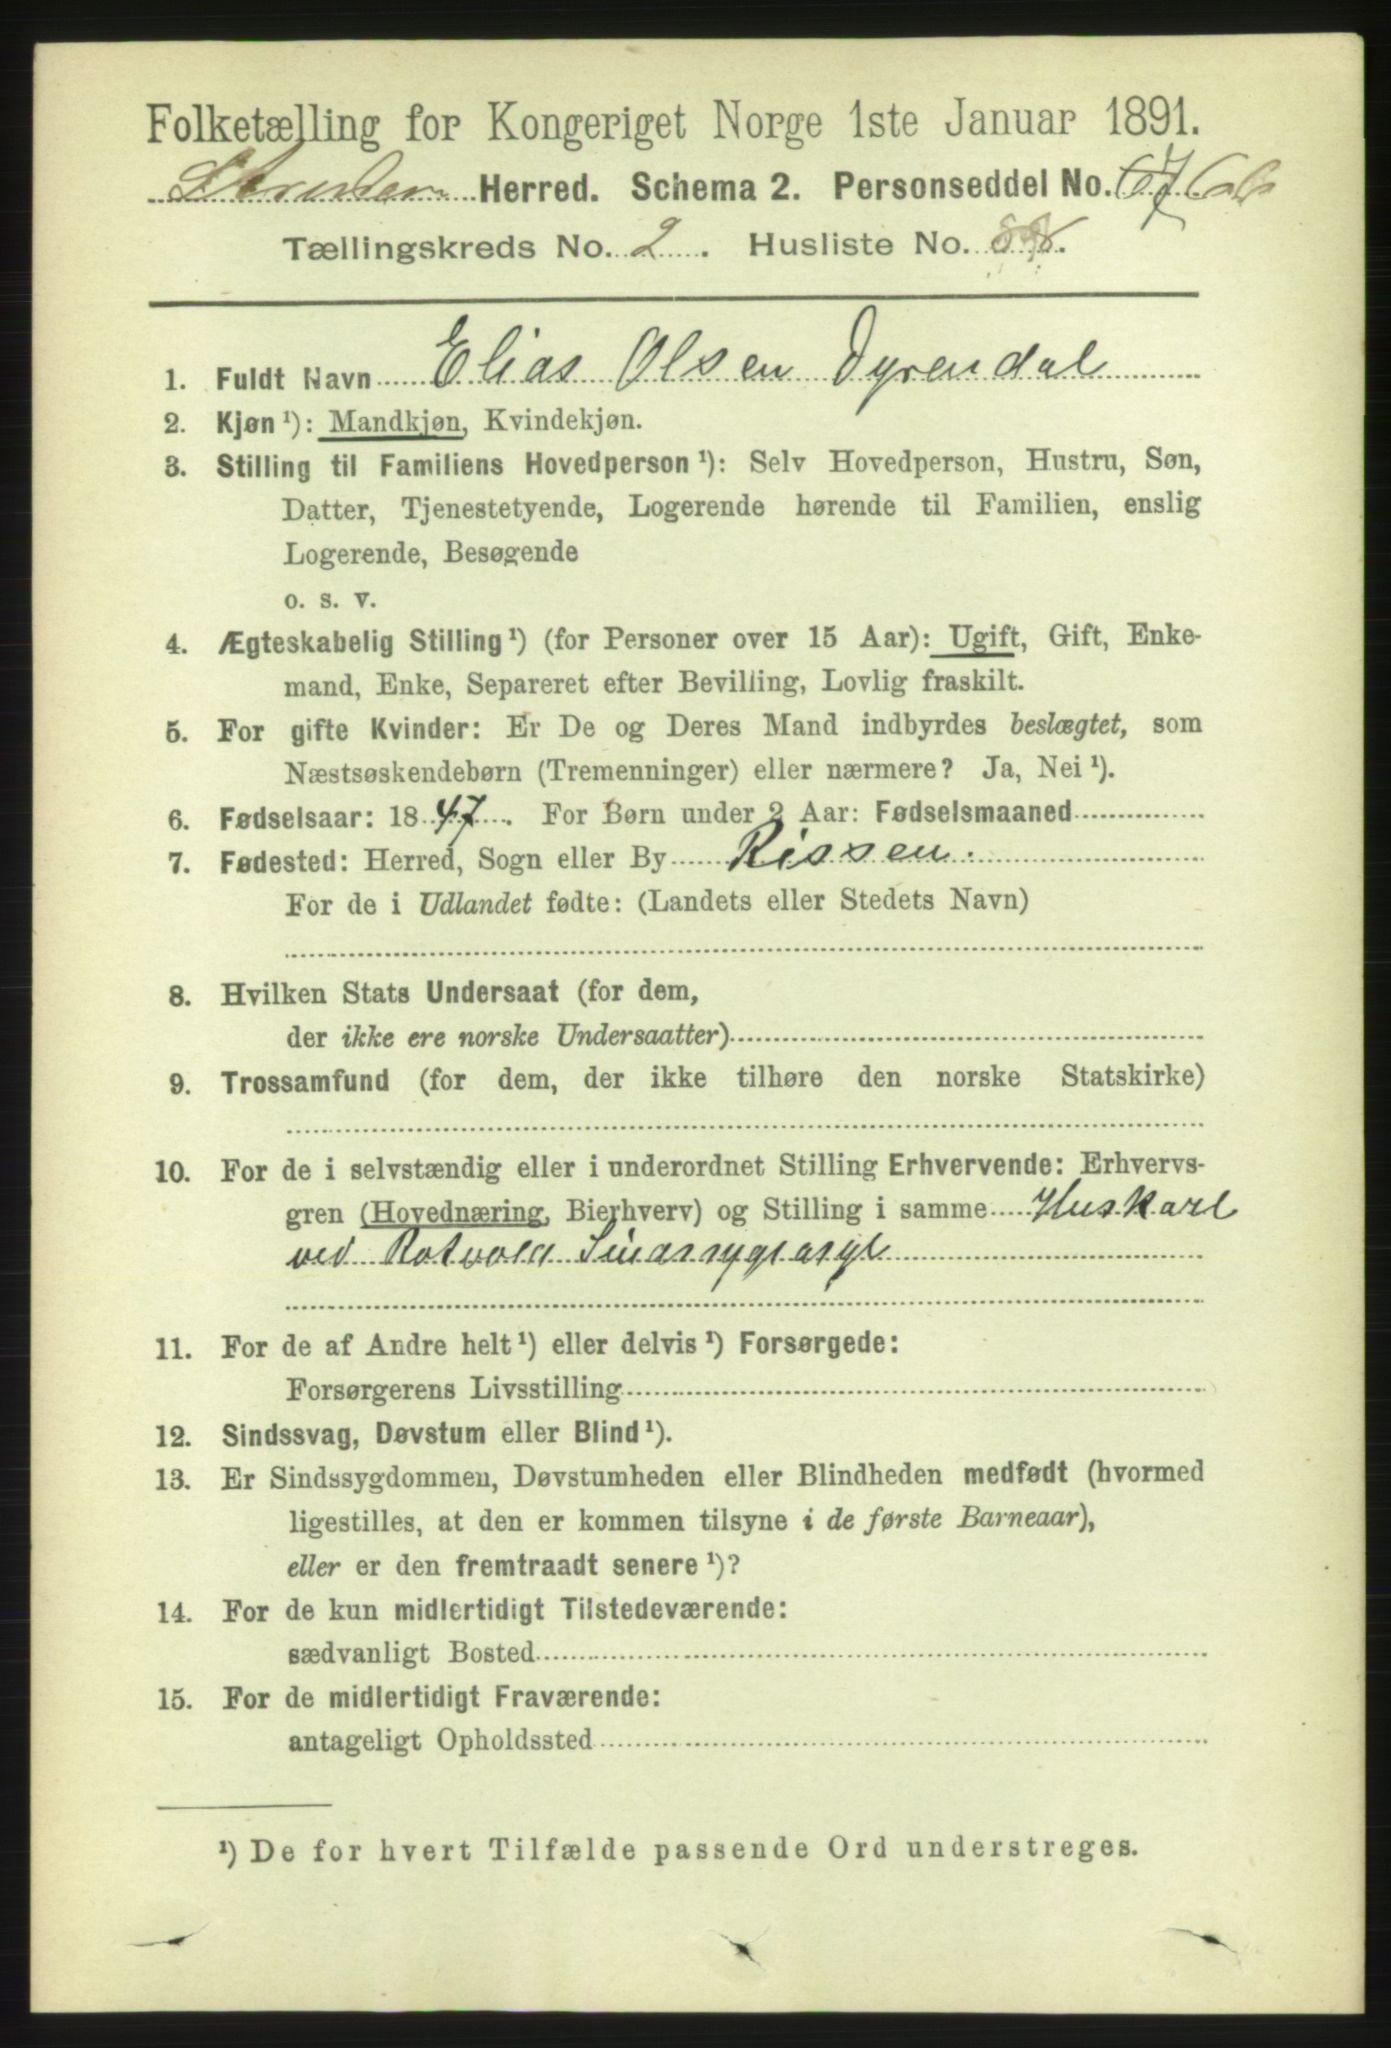 Folketælling for Kongeriget Norge 1ste Januar 1891.
Strinden Herred. Schema 2. Personseddel No. 67
Tællingskreds No. 2. Husliste No.
1. Fuldt Navn Elias Olsen Dyrendal
2. Kjøn ¹): Mandkjøn, Kvindekjøn.
3. Stilling til Familiens Hovedperson ¹): Selv Hovedperson, Hustru, Søn,
Datter, Tjenestetyende, Logerende hørende til Familien, enslig
Logerende, Besøgende
o. s. v.
4. Ægteskabelig Stilling ¹) (for Personer over 15 Aar): Ugift, Gift, Enke-
mand, Enke, Separeret efter Bevilling, Lovlig fraskilt.
5. For gifte Kvinder: Er De og Deres Mand indbyrdes beslægtet, som
Næstsøskendebørn (Tremenninger) eller nærmere? Ja, Nei ¹).
6. Fødselsaar: 1847. For Børn under 2 Aar: Fødselsmaaned
7. Fødested: Herred, Sogn eller By Rissen.
For de i Udlandet fødte: (Landets eller Stedets Navn)
8. Hvilken Stats Undersaat (for dem,
der ikke ere norske Undersaatter)
9. Trossamfund (for dem, der ikke tilhøre den norske Statskirke)
10. For de i selvstændig eller i underordnet Stilling Erhvervende: Erhvervs-
gren (Hovednæring, Bierhverv) og Stilling i samme Huskarl
ved Rotvold Sindssygeasyl
11. For de af Andre helt ¹) eller delvis ¹) Forsørgede:
Forsørgerens Livsstilling
12. Sindssvag, Døvstum eller Blind ¹).
13. Er Sindssygdommen, Døvstumheden eller Blindheden medfødt (hvormed
ligestilles, at den er kommen tilsyne i de første Barneaar),
eller er den fremtraadt senere ¹)?
14. For de kun midlertidigt Tilstedeværende:
sædvanligt Bosted
15. For de midlertidigt Fraværende:
antageligt Opholdssted
¹) De for hvert Tilfælde passende Ord understreges.